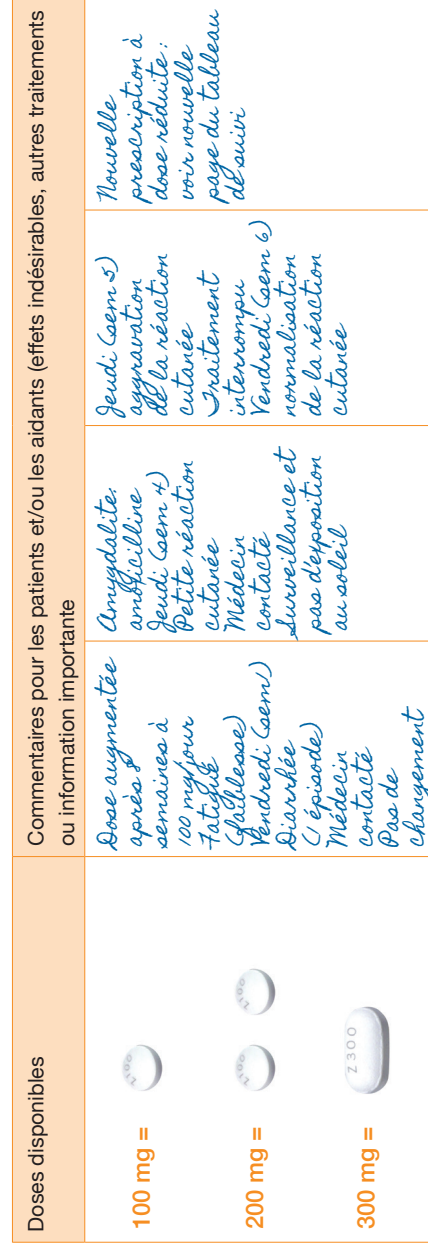 Doses disponibles
Commentaires pour les patients et/ou les aidants (effets indésirables, autres traitements
ou information importante
100 mg =
200 mg =
300 mg =
Z 300
Dose augmentée
après 8
semaines à
100 mg/jour
Fatigue
(faiblesse)
Vendredi (sem 1)
Diarrhée
(1 épisode)
Médecin
contacté
Pas de
changement
Amygdalite:
amoxicilline
Jeudi (sem 4)
Petite réaction
cutanée
Médecin
contacté
Surveillance et
pas d'exposition
au soleil
Jeudi (sem 5)
aggravation
de la réaction
cutanée
Traitement
interrompu
Vendredi (sem 6)
normalisation
de la réaction
cutanée
Nouvelle
prescription à
dose réduite :
voir nouvelle
page du tableau
de suivi